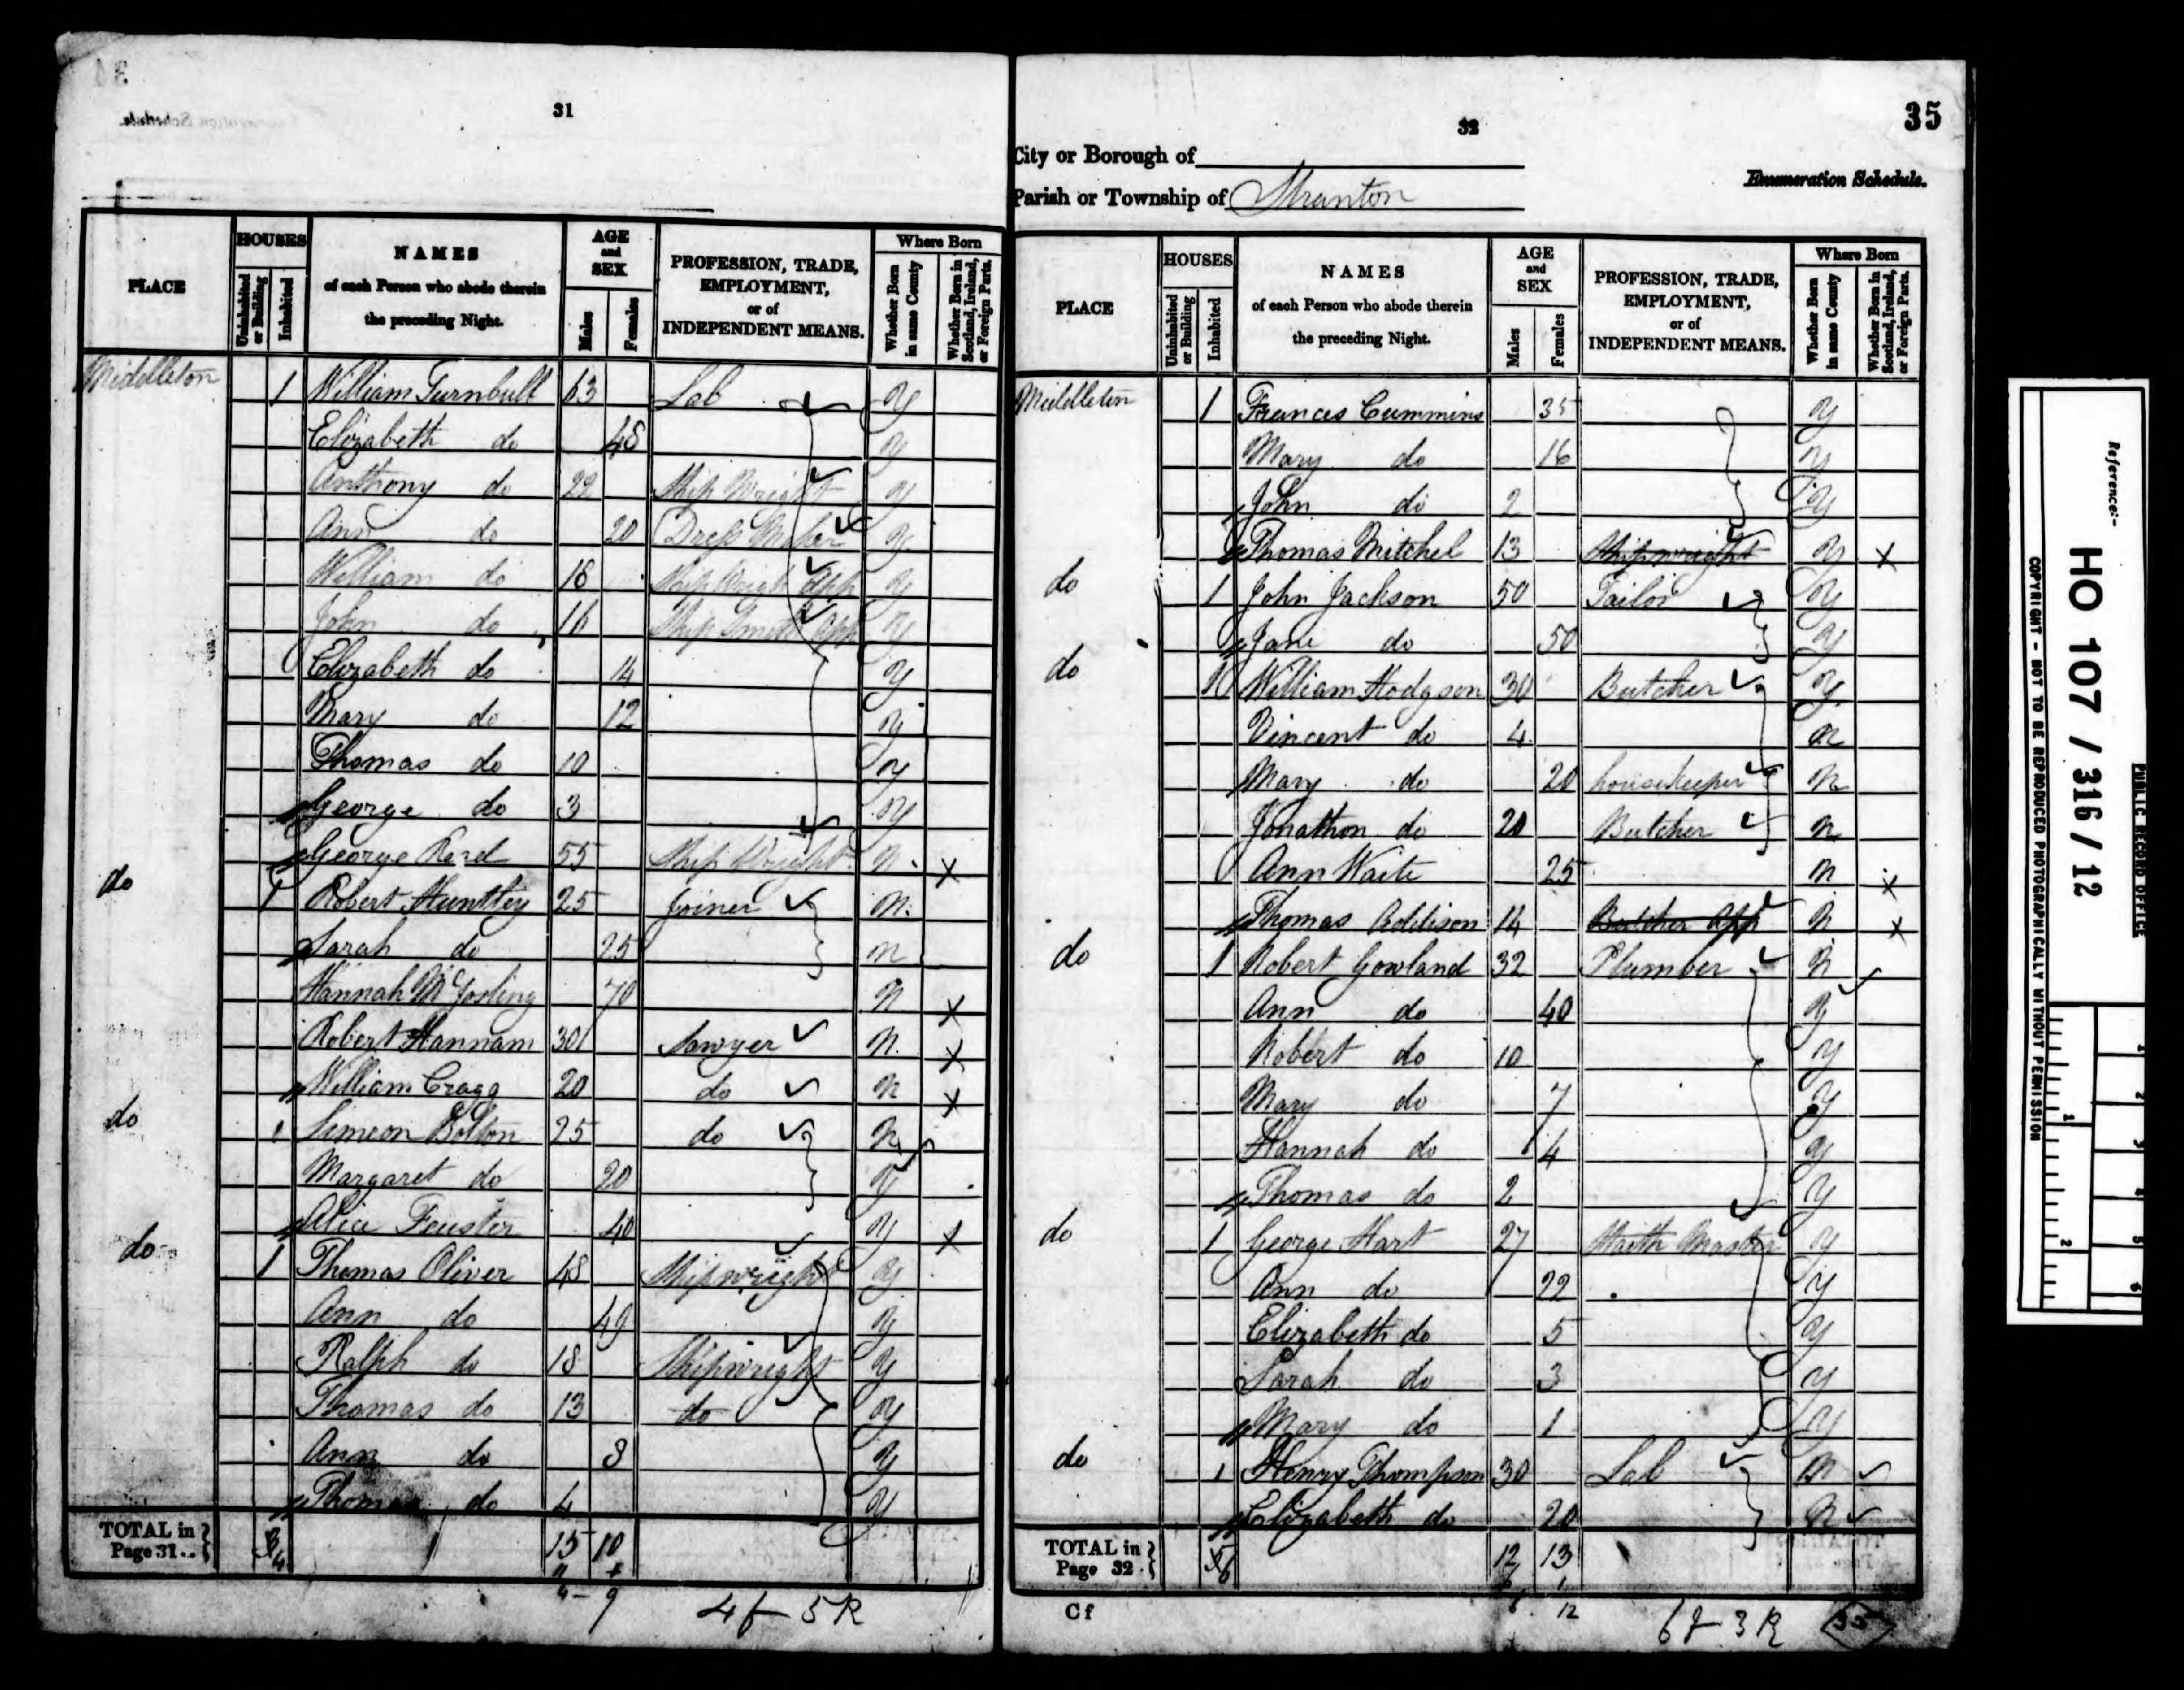 31
PLACE
HOUSES
Uninhabited or Building
Inhabited
NAMES
of each Person who abode therein
the preceding Night.
AGE
and
SEX
Males
Females
PROFESSION, TRADE,
EMPLOYMENT,
or of
INDEPENDENT MEANS.
Where Born
Whether Born in same County
Whether Born in Scotland, Ireland, or Foreign Parts.
Middleton 1 William Turnbull 63 Lab Y
Elizabeth do 48 Y
Anthony do 22 Ship Wright Y
Ann do 20 Dress Maker Y
William do 18 Ship Wright App Y
John do 16 Ship Smith App Y
Elizabeth do 14 Y
Mary do 12 Y
Thomas do 10 Y
George do 3 Y
George Reed 55 Ship Wright N X
do 1 Robert Huntley 25 Joiner N
Sarah do 25 N
Hannah 70 N X
Robert Hannam 30 Sawyer N X
William Cragg 20 do N X
do 1 Simeon Bolton 25 do N
Margaret do 20 Y
Alice 40 Y X
do 1 Thomas Oliver 48 Shipwright Y
Ann do 49 Y
Ralph do 18 Shipwright Y
Thomas do 13 do Y
Ann do 8 Y
Thomas do 4 Y
TOTAL in
Page 31.. 4 15 10
9 4f 5R
32
35
City or Borough of
Parish or Township of Stranton
Enumeration Schedule.
PLACE
HOUSES
Uninhabited or Building
Inhabited
NAMES
of each Person who abode therein
the preceding Night.
AGE
and
SEX
Males
Females
PROFESSION, TRADE,
EMPLOYMENT,
or of
INDEPENDENT MEANS.
Where Born
Whether Born in same County
Whether Born in Scotland, Ireland, or Foreign Parts.
Middleton 1 Frances Cummins 35 Y
Mary do 16 Y
John do 2 Y
Thomas Mitchel 13 Shipwright Y X
do 1 John Jackson 50 Tailor Y
Jane do 50 Y
do 1 William Hodgson 30 Butcher Y
Vincent do 4 N
Mary do 20 housekeeper N
Jonathon do 20 Butcher N
Ann Waite 25 N X
Thomas Addison 14 Butcher App N X
do 1 Robert Gowland 32 Plumber N
Ann do 40 Y
Robert do 10 Y
Mary do 7 Y
Hannah do 4 Y
Thomas do 2 Y
do 1 George Hart 27 Staith Master Y
Ann do 22 Y
Elizabeth do 5 Y
Sarah do 3 Y
Mary do 1 Y
do 1 Henry Thompson 30 Lab N
Elizabeth do 20 N
TOTAL in
Page 32. 6 12 13
Cf 6 12 6f 3R 35
Reference:-
HO 107 / 316 / 12
PUBLIC RECORD OFFICE
COPYRIGHT - NOT TO BE REPRODUCED PHOTOGRAPHICALLY WITHOUT PERMISSION
1
2
1
2
3
4
5
6